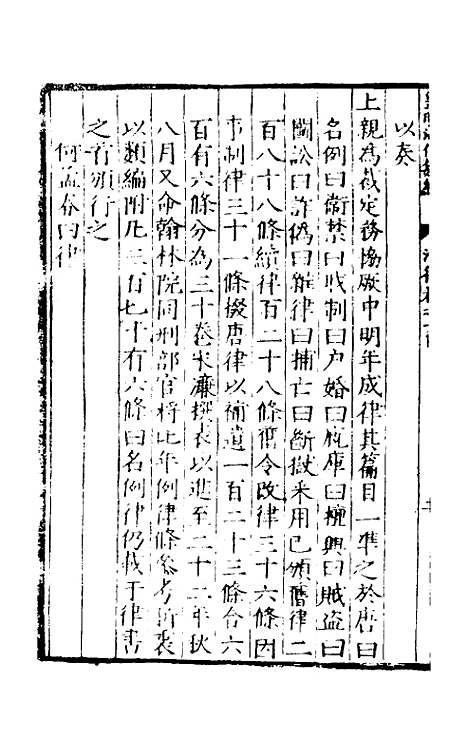 以奏
上親為裁定務協厥中明年成律其篇目一準之於唐曰
名例曰衛禁曰職制曰户婚曰廐庫曰擅興曰賊盗曰
鬭訟曰詐偽曰雜律曰捕亡曰斷獄釆用已頒舊律二
百八十八條續律百二十八條舊令改律三十六條因
事制律三十一條掇唐律以補遺一百二十三條合六
百有六條分為三十卷宋濂撰表以進至二十二年秋
八月又命翰林院同刑部官将比年例律條叅考折衷
以類編附凡四百七十有六條曰名例律仍載于律書
之首頒行之
何孟春曰律